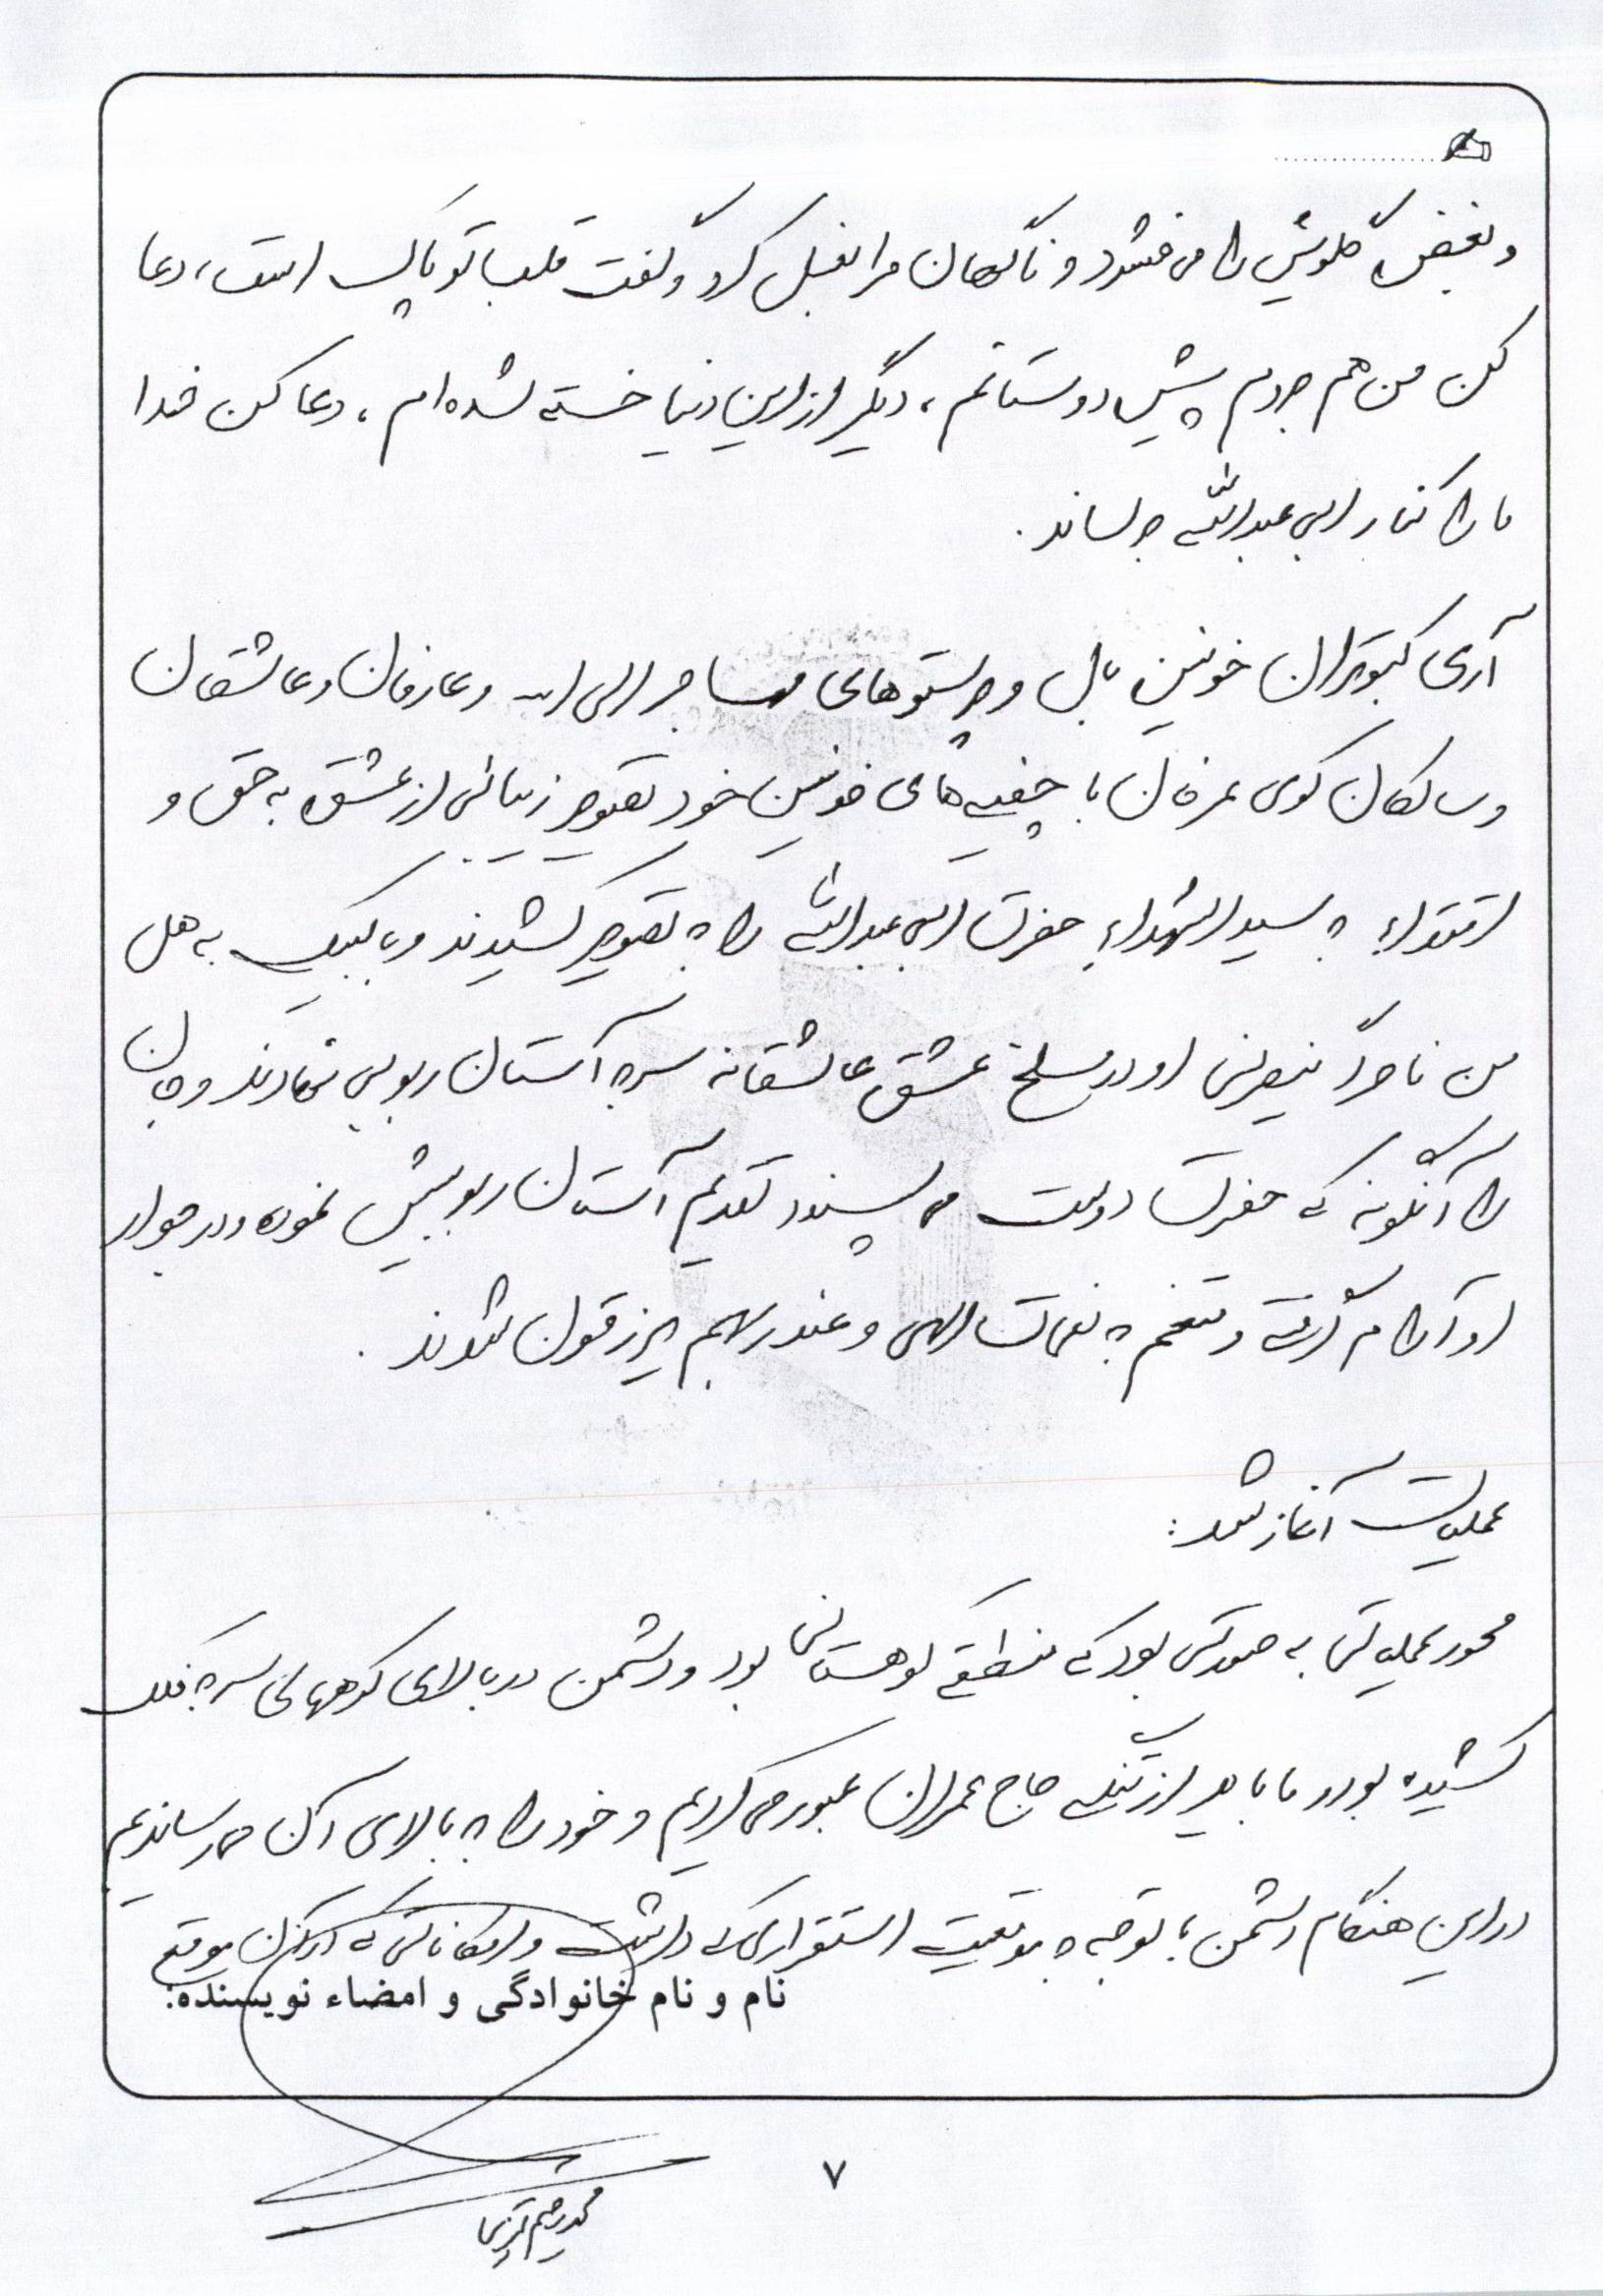 و بغض گلویش را می فشرد و ناگهان مرا بغل کرد و گفت قلب تو پاک است، دعا
کن من هم بروم پیش دوستانم، دیگر از این دنیا خسته شده ام، دعا کن خدا
ما را کنار ابی عبدالله برساند.
آری کبوتران خونین بال و پرستوهای مهاجر الی الله و عارفان و عاشقان
و سالکان کوی عرفان با چفیه های خونین خود تصویر زیبائی از عشق به حق و
اقتداء به سید الشهداء حضرت ابی عبدالله را به تصویر کشیدند و با لبیک به هل
من ناصر ینصرنی او در مسلخ عشق عاشقانه سر به آستان ربوبی نهادند و جان
را آنگونه که حضرت دوست می پسندد تقدیم آستان ربوبیش نموده و در جوار
او آرام گرفته و متنعم به نعمات الهی و عند ربهم یرزقون شدند.
عملیات آغاز شد:
محور عملیاتی به صورتی بود که منطقه کوهستانی بود و دشمن در بالای کوههای سر به فلک
کشیده بود و ما باید از تنگه حاج عمران عبور می کردیم و خود را به بالای آن می رساندیم
در این هنگام دشمن با توجه به موقعیت استقراری که داشت و امکاناتی که در آن موقع
نام و نام خانوادگی و امضاء نویسنده:
۷
محمد رحیم